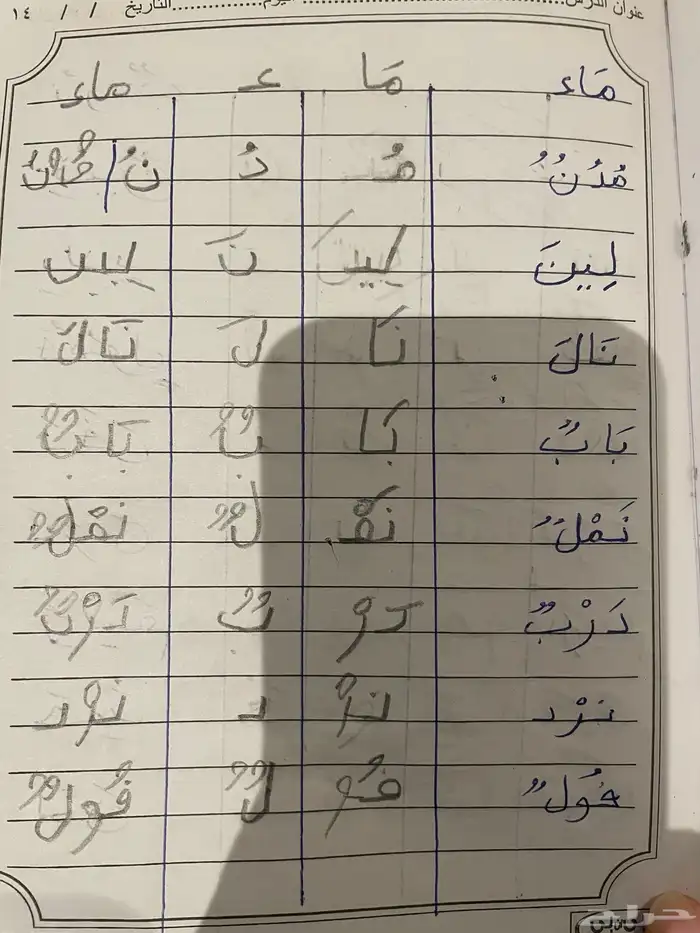 عنوان الدرس............ اليوم............ التاريخ / / ١٤
مَاء مَا ء ماء
مُدُنٌ مُ دُ نٌ / مُدُنٌ
لِينَ لِيـ نَ لِين
نَالَ نَا لَ نَالَ
بَابٌ بَا بٌ بَابٌ
نَمْلٌ نَمْـ لٌ نَمْلٌ
دَرْبٌ دَرْ بٌ دَرْبٌ
نرْد نرْ د نرْد
فُولٌ فُو لٌ فُولٌ
حراج